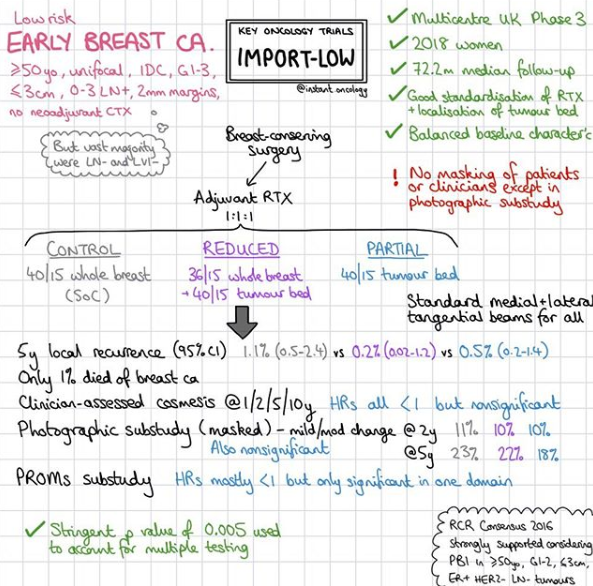 Low risk
EARLY BREAST CA.
≥50yo, unifocal, IDC, G1-3,
≤3cm, 0-3 LN+, 2mm margins,
no neoadjuvant CTX
But vast majority
were LN- and LVI-
KEY ONCOLOGY TRIALS
IMPORT-LOW
@instant.oncology
✓ Multicentre UK Phase 3
✓ 2018 women
✓ 72.2m median follow-up
✓ Good standardisation of RTX
+ localisation of tumour bed
✓ Balanced baseline character's
! No masking of patients
or clinicians except in
photographic substudy
Breast-conserving
Surgery
Adjuvant RTX
1:1:1
CONTROL
40/15 whole breast
(SoC)
REDUCED
36/15 whole breast
+40/15 tumour bed
PARTIAL
40/15 tumour bed
Standard medial+lateral
tangential beams for all
5y local recurrence (95% CI) 1.1% (0.5-2.4) vs 0.2% (0.02-1.2) vs 0.5% (0.2-1.4)
Only 1% died of breast ca
Clinician-assessed cosmesis @1/2/5/10y HRs all <1 but nonsignificant
Photographic substudy (masked) - mild/mod change @2y 11% 10% 10%
Also nonsignificant @5y 23% 22% 18%
PROMs substudy HRs mostly <1 but only significant in one domain
✓ Stringent p value of 0.005 used
to account for multiple testing
RCR Consensus 2016
strongly supported considering
PBI in ≥50yo, G1-2, ≤3cm,
ER+ HER2- LN- tumours